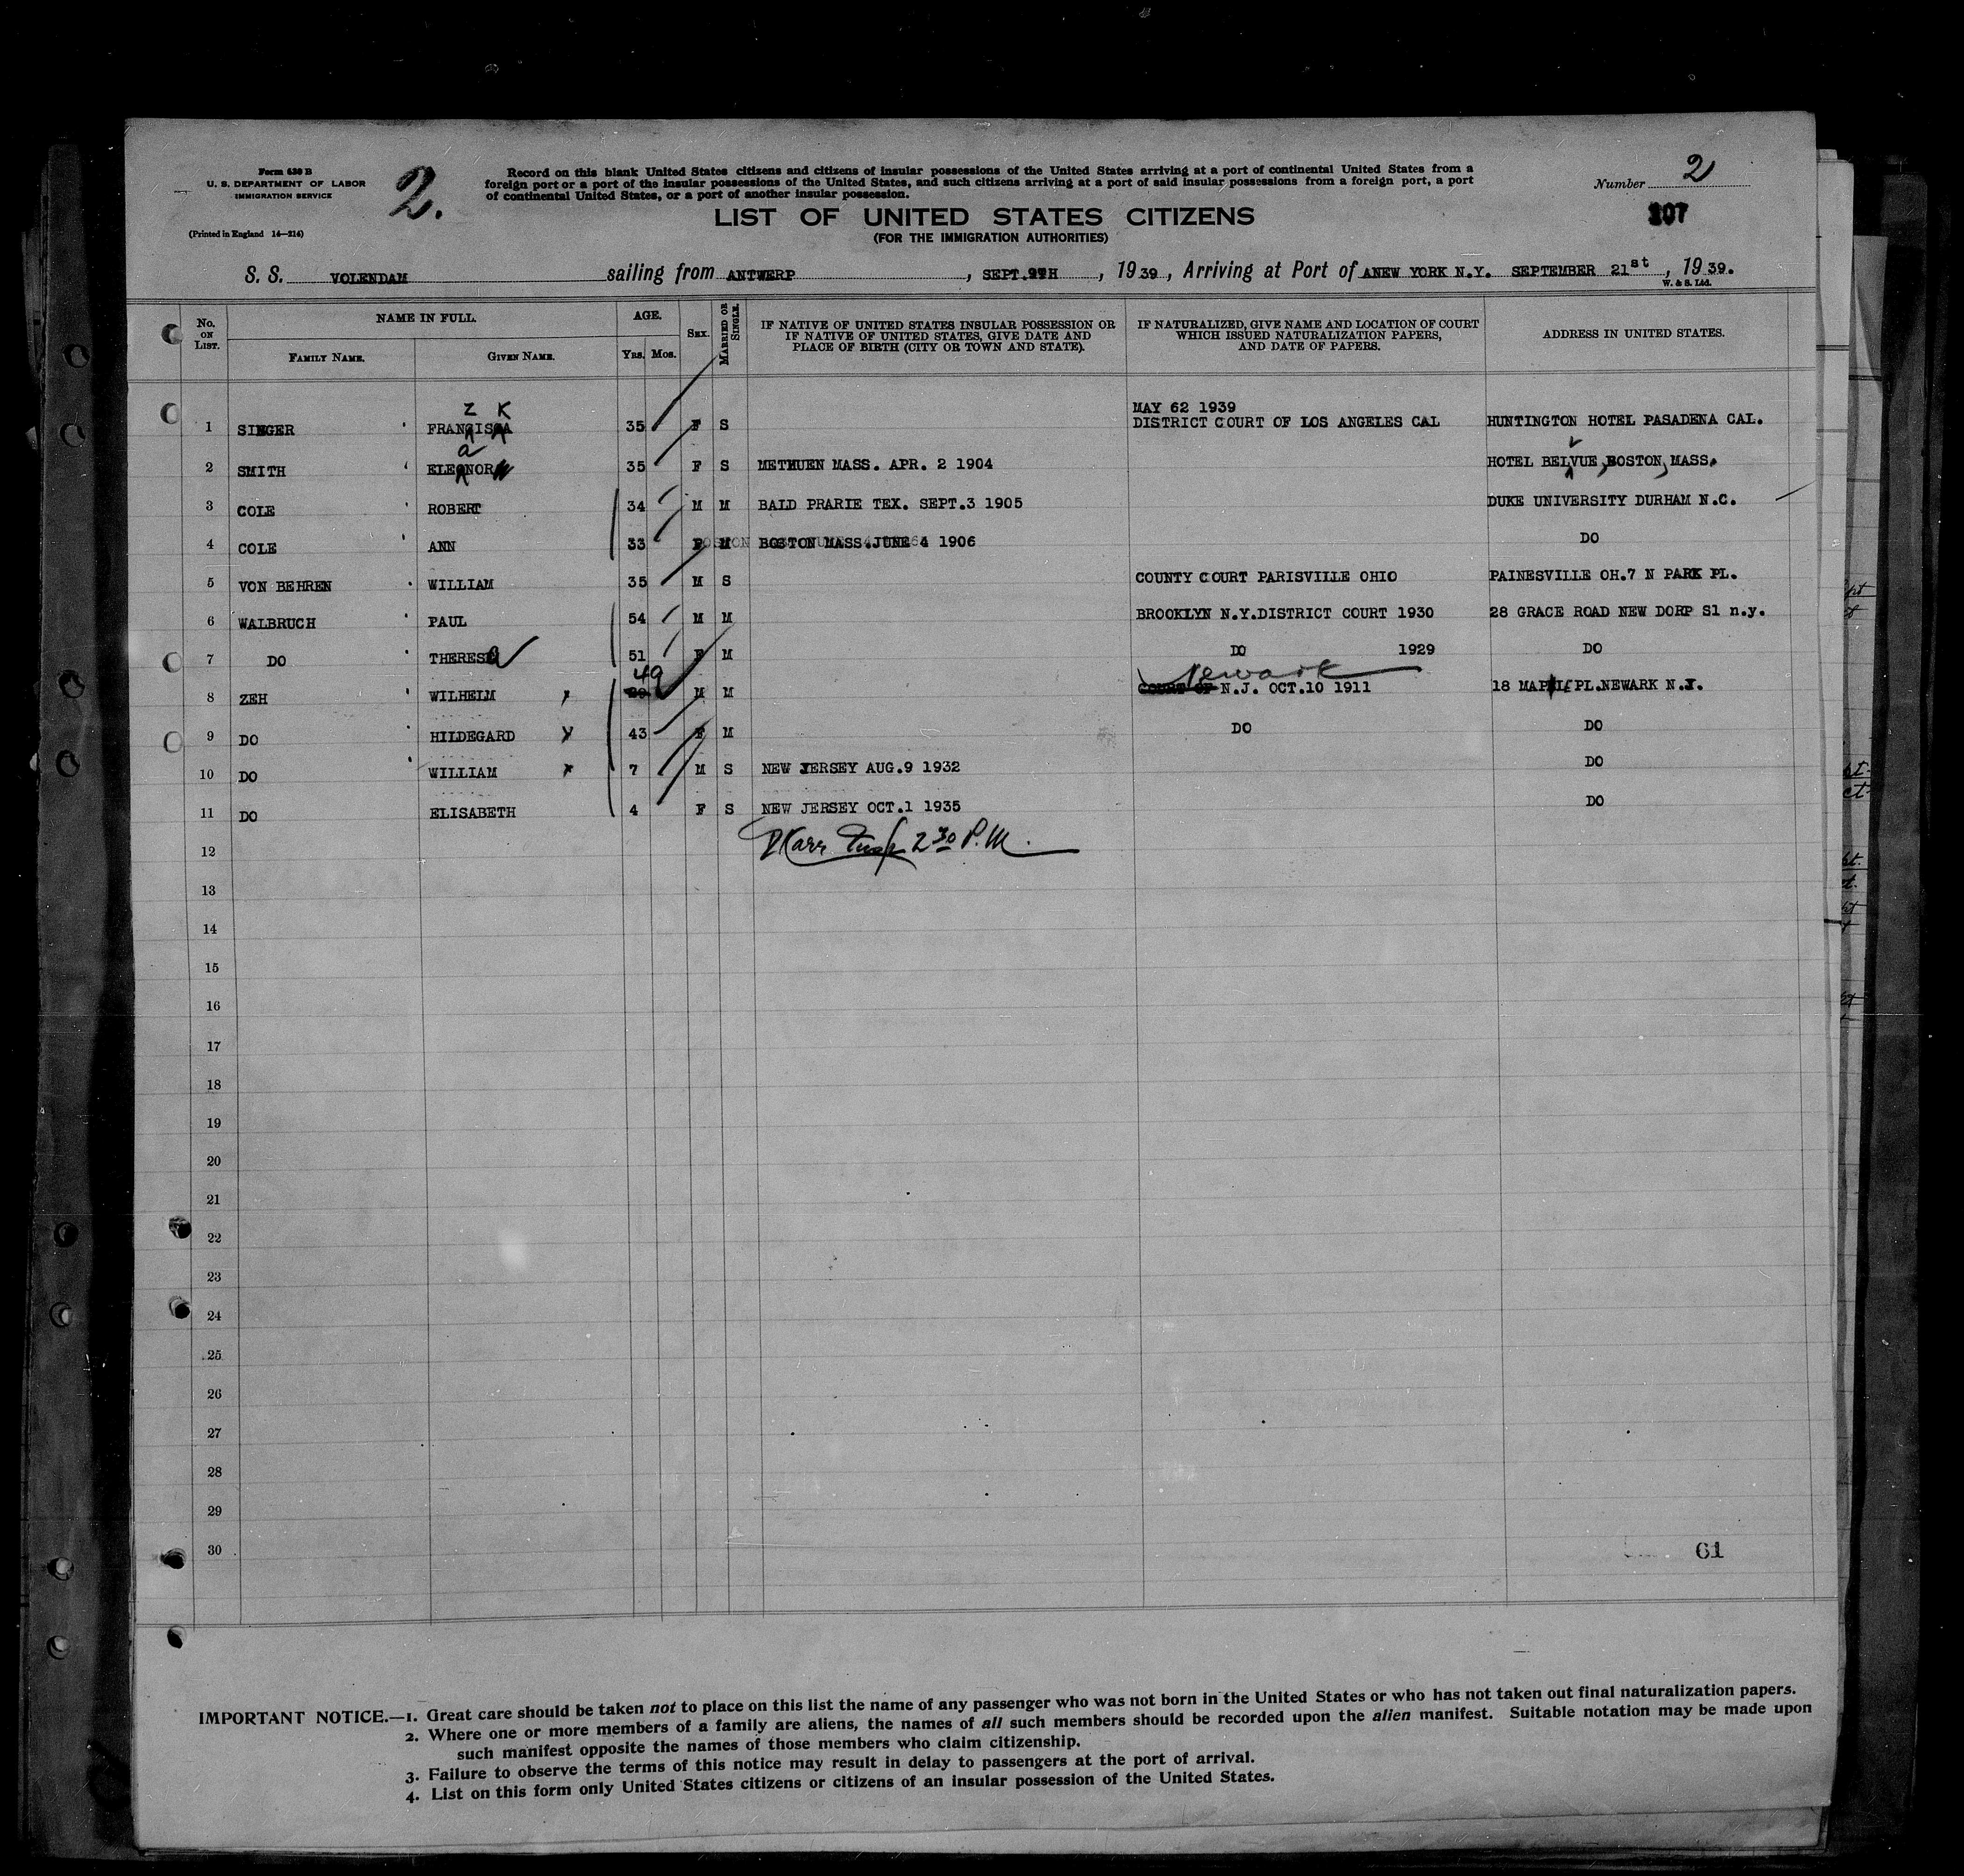 Form 630 B
U. S. DEPARTMENT OF LABOR
IMMIGRATION SERVICE
(Printed in England 14—214)
2.
Record on this blank United States citizens and citizens of insular possessions of the United States arriving at a port of continental United States from a
foreign port or a port of the insular possessions of the United States, and such citizens arriving at a port of said insular possessions from a foreign port, a port
of continental United States, or a port of another insular possession.
Number 2
107
LIST OF UNITED STATES CITIZENS
(FOR THE IMMIGRATION AUTHORITIES)
S. S. VOLENDAM sailing from ANTWERP, SEPT. 9TH, 1939, Arriving at Port of ANEW YORK N.Y. SEPTEMBER 21st, 1939.
W. & S. Ltd.
No. ON LIST. NAME IN FULL. AGE. SEX. MARRIED OR SINGLE. IF NATIVE OF UNITED STATES INSULAR POSSESSION OR IF NATIVE OF UNITED STATES, GIVE DATE AND PLACE OF BIRTH (CITY OR TOWN AND STATE). IF NATURALIZED, GIVE NAME AND LOCATION OF COURT WHICH ISSUED NATURALIZATION PAPERS, AND DATE OF PAPERS. ADDRESS IN UNITED STATES.
FAMILY NAME. GIVEN NAME. YRS. MOS.
MAY 62 1939
1 SINGER FRANZISKA 35 F S DISTRICT COURT OF LOS ANGELES CAL HUNTINGTON HOTEL PASADENA CAL.
2 SMITH ELEANOR 35 F S METHUEN MASS. APR. 2 1904 HOTEL BELVUE, BOSTON, MASS.
3 COLE ROBERT 34 M M BALD PRARIE TEX. SEPT.3 1905 DUKE UNIVERSITY DURHAM N.C.
4 COLE ANN 33 F M BOSTON MASS.JUNE 4 1906 DO
5 VON BEHREN WILLIAM 35 M S COUNTY COURT PARISVILLE OHIO PAINESVILLE OH.7 N PARK PL.
6 WALBRUCH PAUL 54 M M BROOKLYN N.Y.DISTRICT COURT 1930 28 GRACE ROAD NEW DORP S1 n.y.
7 DO THERESA 51 F M DO 1929 DO
8 ZEH WILHELM 49 M M Newark N.J. OCT.10 1911 18 MAPLE PL.NEWARK N.J.
9 DO HILDEGARD 43 F M DO DO
10 DO WILLIAM 7 M S NEW JERSEY AUG.9 1932 DO
11 DO ELISABETH 4 F S NEW JERSEY OCT.1 1935 DO
12 2 30 P.M.
13
14
15
16
17
18
19
20
21
22
23
24
25
26
27
28
29
30
61
IMPORTANT NOTICE.—1. Great care should be taken not to place on this list the name of any passenger who was not born in the United States or who has not taken out final naturalization papers.
2. Where one or more members of a family are aliens, the names of all such members should be recorded upon the alien manifest. Suitable notation may be made upon
such manifest opposite the names of those members who claim citizenship.
3. Failure to observe the terms of this notice may result in delay to passengers at the port of arrival.
4. List on this form only United States citizens or citizens of an insular possession of the United States.